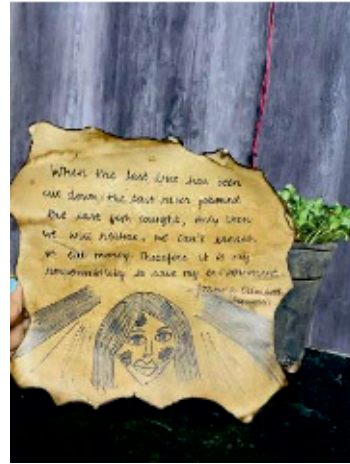 When the last tree has been
cut down, the last river poisoned
the last fish caught, only then
we will realise, we can't breath
or eat money. Therefore it is my
responsibility to save my environment.